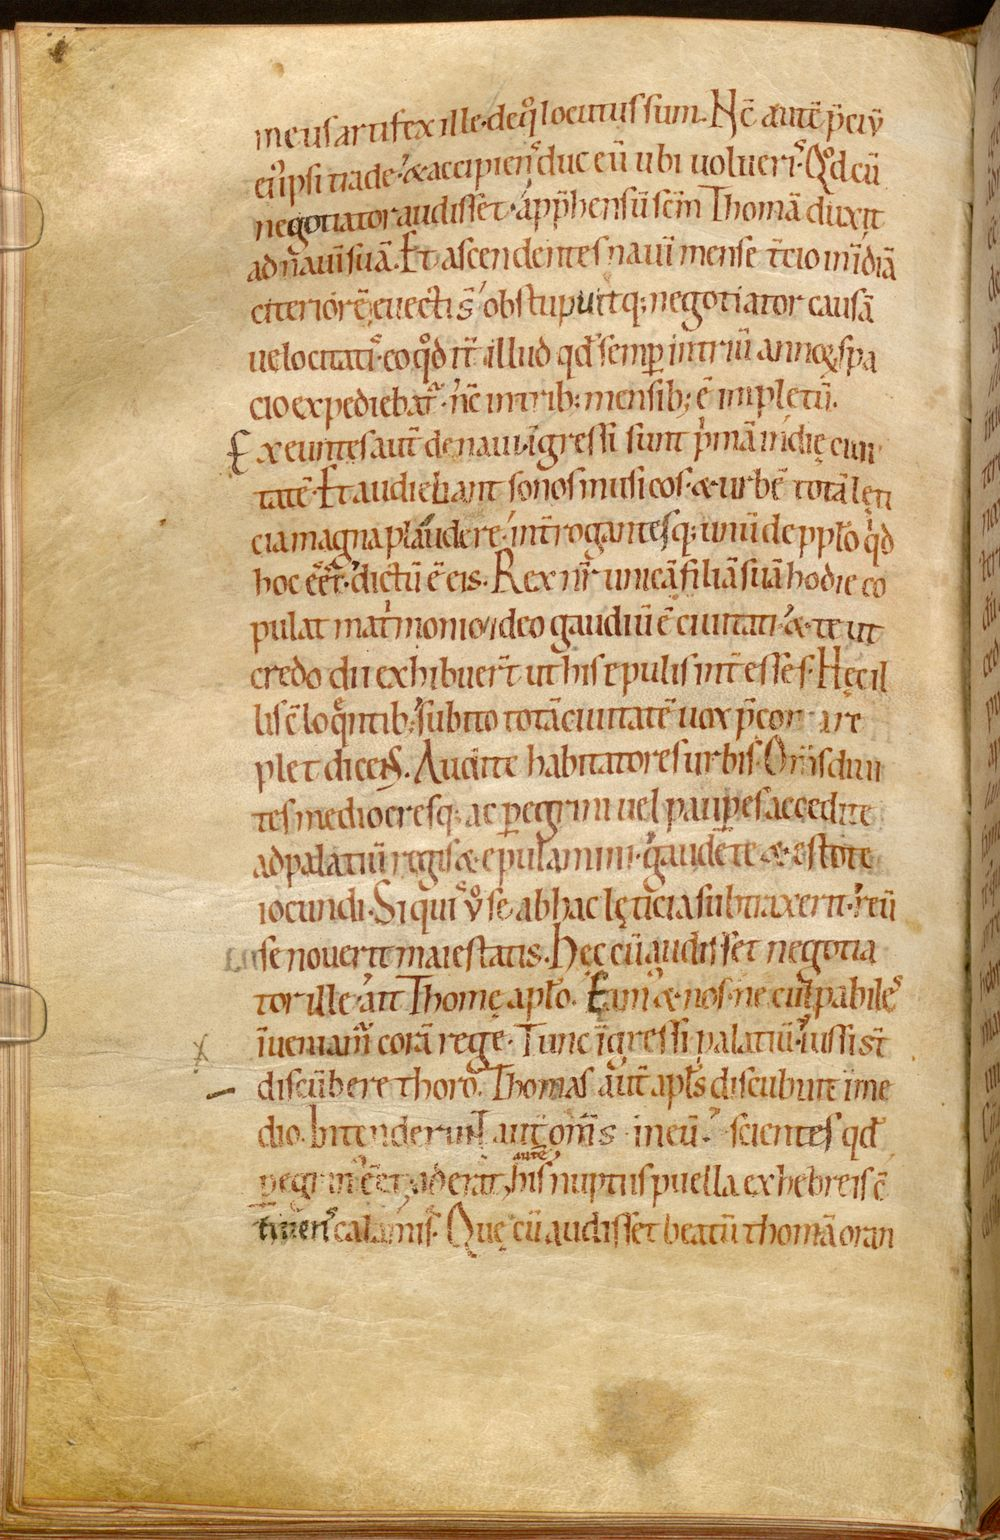 meus artifex ille· de q̊ locutus sum. Nc̄ autē p̄ciū
ei᷒ ipsi trade· & accipiens᷒ duc eū ubi uolueris᷒· Qd̊ cū
negotiator audisset· app̄hensū sc̄m Thomā duxit
ad nauī suā. Et ascendentes nauī mense t̄cio in īdiā
citeriorē euecti s̄· obstupuitq; negotiator causā
uelocitatis᷒· eo qd̊ it̄ illud qd̄ semp̄ in triū annoꝝ spa
cio expediebat᷒· nc̄ in trib; mensib; ē impletū.
Exeuntes aut̄ de naui· īgressi sunt p'mā indię ciui
tatē· Et audiebant sonos musicos· & urbē totā lęti
cia magna plaudere· int̄rogantesq; unū de pplo qd
hoc eēt· dictū ē eis. Rex nr̄ unicā filiā suā hodie co
pulat mat'monio· ideo gaudiū ē ciuitati· & te ut
credo dii exhibuer̄t ut his epulis int̄esses. Hęc il
lis ē loqntib; subito totā ciuitatē uox p̄con re
plet dicens. Audite habitatores urbis· Om̄s diui
tes mediocresq; ac p̱egrini uel paup̱es accedite
ad palatiū regis & epulamini· gaudete & estote
iocundi· Siquis᷒ ů se ab hac lęticia subtraxerit· reū
se nouerit maiestatis. Hęc cū audisset negotia
tor ille· ait Thomę aplo. Eam᷒ & nos· ne culpabiles᷒
īueniam᷒ corā rege· Tunc īgressi palatiū· iussi st̄
discūbere thoro. Thomas aut̄ apls discubuit ī me
dio. Intenderunt aut̄ om̄s in eū· scientes qd̄
p̱egrin᷒ eēt· aderat autē his nuptiis puella ex hebreis ē
calamis. Quę cū audisset beatū thomā oran